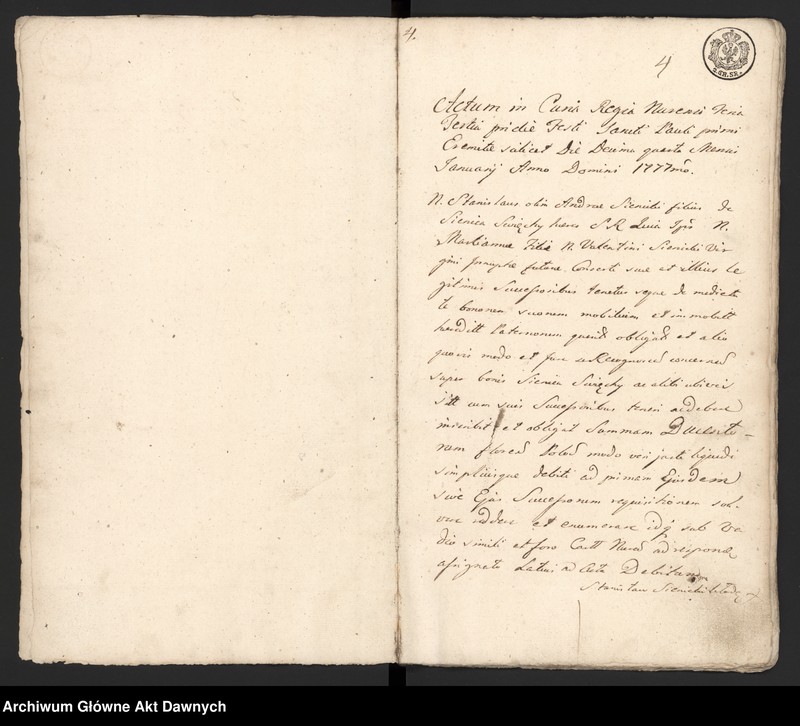 4.
4
Z. GR. SR.
Actum in Curia Regia Nurensi Feria
Tertia pridie Festi Sancti Pauli primi
Eremitæ scilicet Die Decima quarta Mensis
Januarij Anno Domini 1777mo.
N. Stanislaus olim Andreæ Sienicki filius de
Sienica Swięchy hæres S. R. Quia Ipse N.
Mariannæ Filiæ N. Valentini Sienicki Vir
gini futuræ Consorti suæ et illius le
gitimis Successoribus tenetur de medieta
te bonorum suorum mobilium et immobili
heredit Paternorum obligat et alio
quovis modo et jure se concernen
super bonis Sienica Swięchy ac alibi ubivis
sitt cum suis Successoribus teneri ac debere
inscribit et obligat Summam Ducento-
rum floren Polon modo veri justi liquidi
simplicisque debiti ad primam Ejusdem
sive Ejus Successorum requisitionem sol-
vere reddere et enumerare idq sub Va
dio simili et foro Castr Nuren ad respond
assignato Latius ad Acta Debitum
Stanisław Sienicki
Archiwum Główne Akt Dawnych